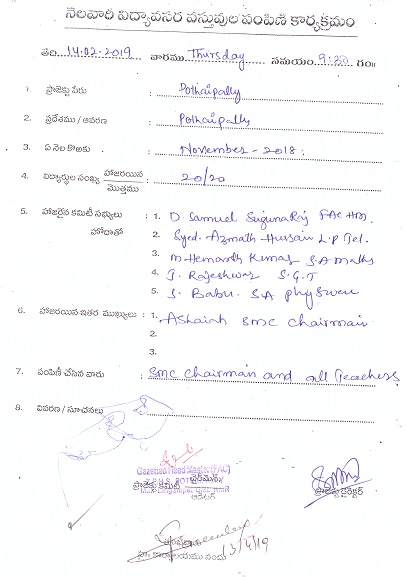 నెలవారి విద్యావసర వస్తువుల పంపిణి కార్యక్రమం
తేది 14.02.2019 వారము Thursday సమయం 9:30 గం॥
1. ప్రాజెక్టు పేరు Pothaipally
2. ప్రదేశము / ఆవరణ Pothaipally
3. ఏ నెల కొఱకు November - 2018.
4. విద్యార్థుల సంఖ్య హాజరయిన / మొత్తము 20/20
5. హాజరైన కమిటీ సభ్యులు హోదాతో : 1. D. Samuel SugunaRaj FAC HM.
2. Syed. Azmath Hussain L.P Tel.
3. M. Hemanth Kumar S.A maths
4. J. Rajeshwar S.G.T
5. J. Babu. S.A Phy Scien
6. హాజరయిన ఇతర ముఖ్యులు : 1. Ashaiah SMC Chairman
2.
3.
7. పంపిణీ చేసిన వారు : SMC Chairman and all Teachers
8. వివరణ / సూచనలు
Gazetted Head Master (FAC)
Z.P.H.S.
ప్రాజెక్టు కమిటీ ఛైర్మెన్ /
ఆడిటర్
ప్రాజెక్టు డైరెక్టర్
కార్యాలయము నందు
13/4/19